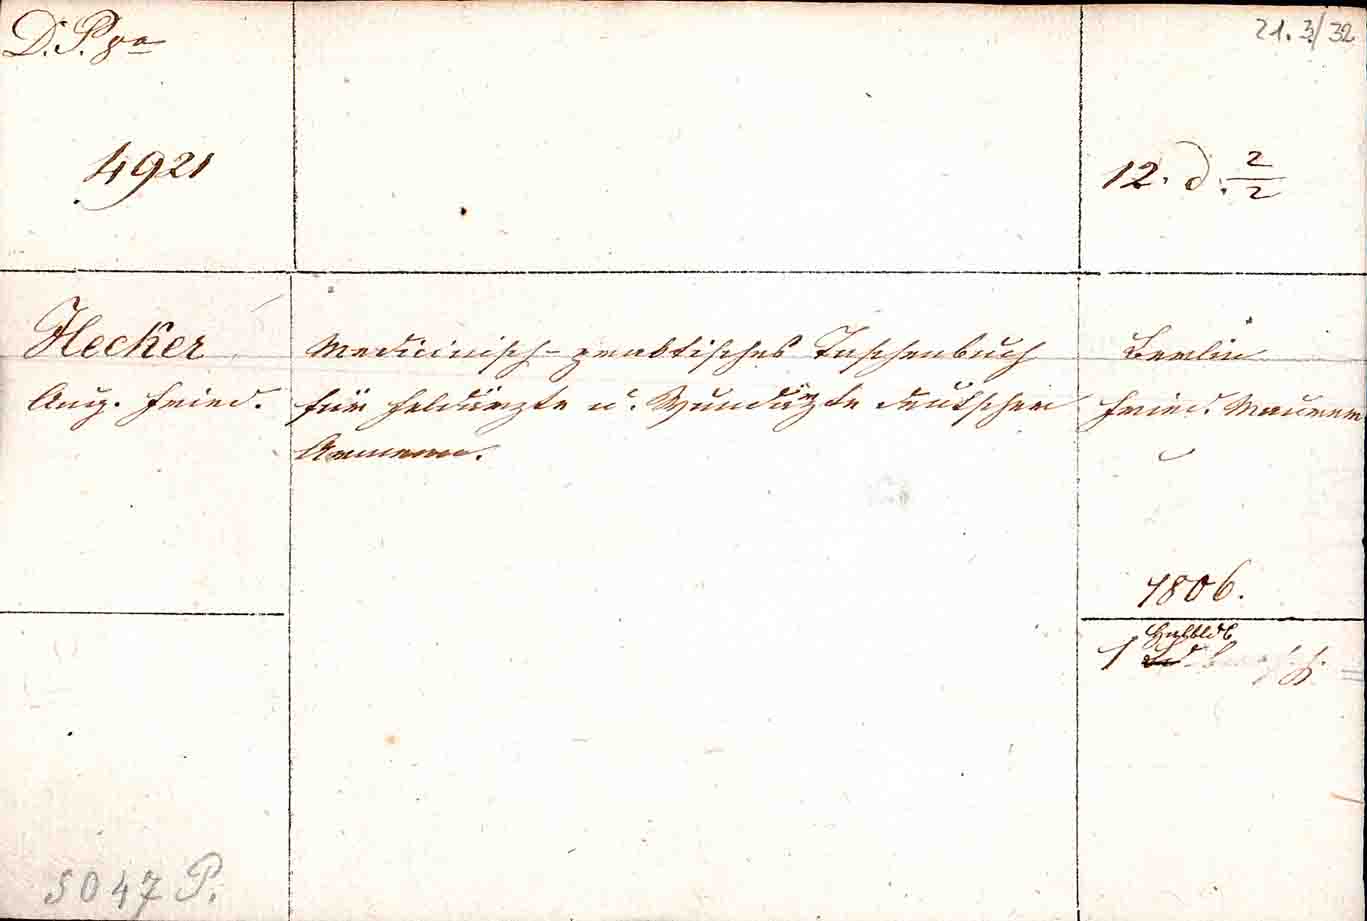 D. P. 8o
21. 3./32
4921
12. d. 2/2
Hecker
Aug. Fried.
Medicinisch-praktisches Taschenbuch
für Feldärzte u. Wundärzte deutscher
Armeen.
Berlin
Fried. Maurer
1806.
Halbldb
1
5047 P.